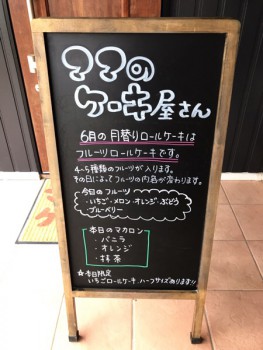 ママの
ケーキ屋さん
6月の月替りロールケーキは
フルーツロールケーキです。
4~5種類のフルーツが入ります。
その日によってフルーツの内容が変わります。
今日のフルーツ
・いちご・メロン・オレンジ・ぶどう
・ブルーベリー
本日のマカロン
・バニラ
・オレンジ
・抹茶
☆本日限定
いちごロールケーキ、ハーフサイズあります!!